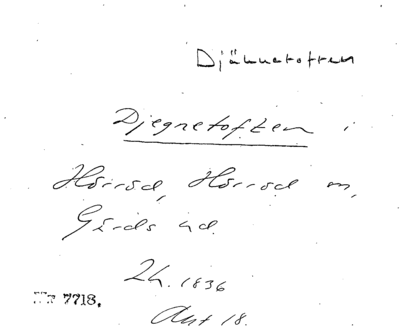 Djäknetoften
Djegnetoften i
Hörröd, Hörröd sn,
Gärds hd.
Lh. 1836
Nr 7718.
Akt 18.